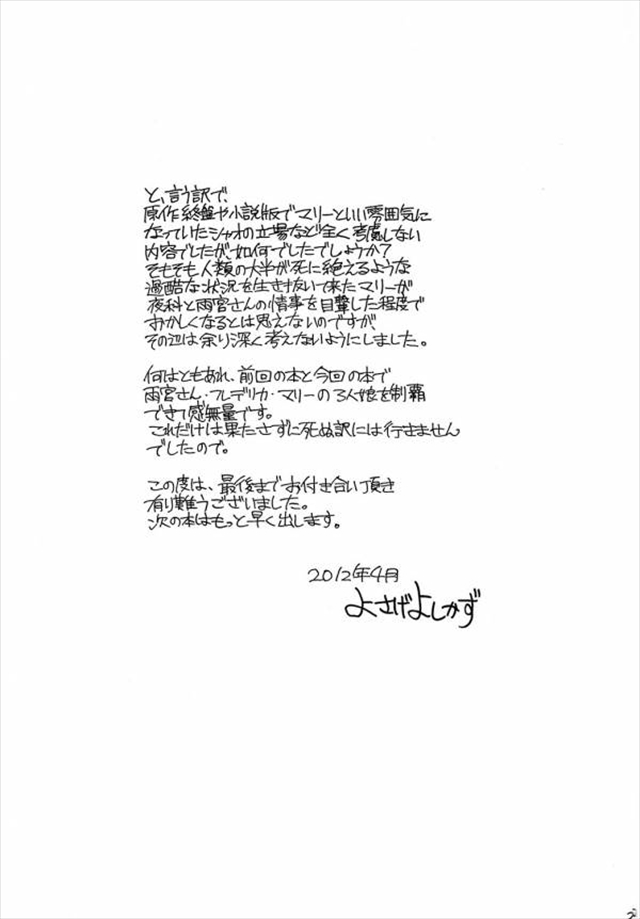 と、言う訳で、
原作終盤や小説版でマリーといい雰囲気に
なっていたシャオの立場など全く考慮しない
内容でしたが、如何でしたでしょうか?
そもそも人類の大半が死に絶えるような
過酷な状況を生き抜いて来たマリーが
夜科と雨宮さんの情事を目撃した程度で
おかしくなるとは思えないのですが、
その辺は余り深く考えないようにしました。
何はともあれ、前回の本と今回の本で
雨宮さん・フレデリカ・マリーの3人娘を制覇
できて感無量です。
これだけは果たさずに死ぬ訳には行きません
でしたので。
この度は、最後までお付き合い頂き
有り難うございました。
次の本はもっと早く出します。
2012年4月
よさげよしかず